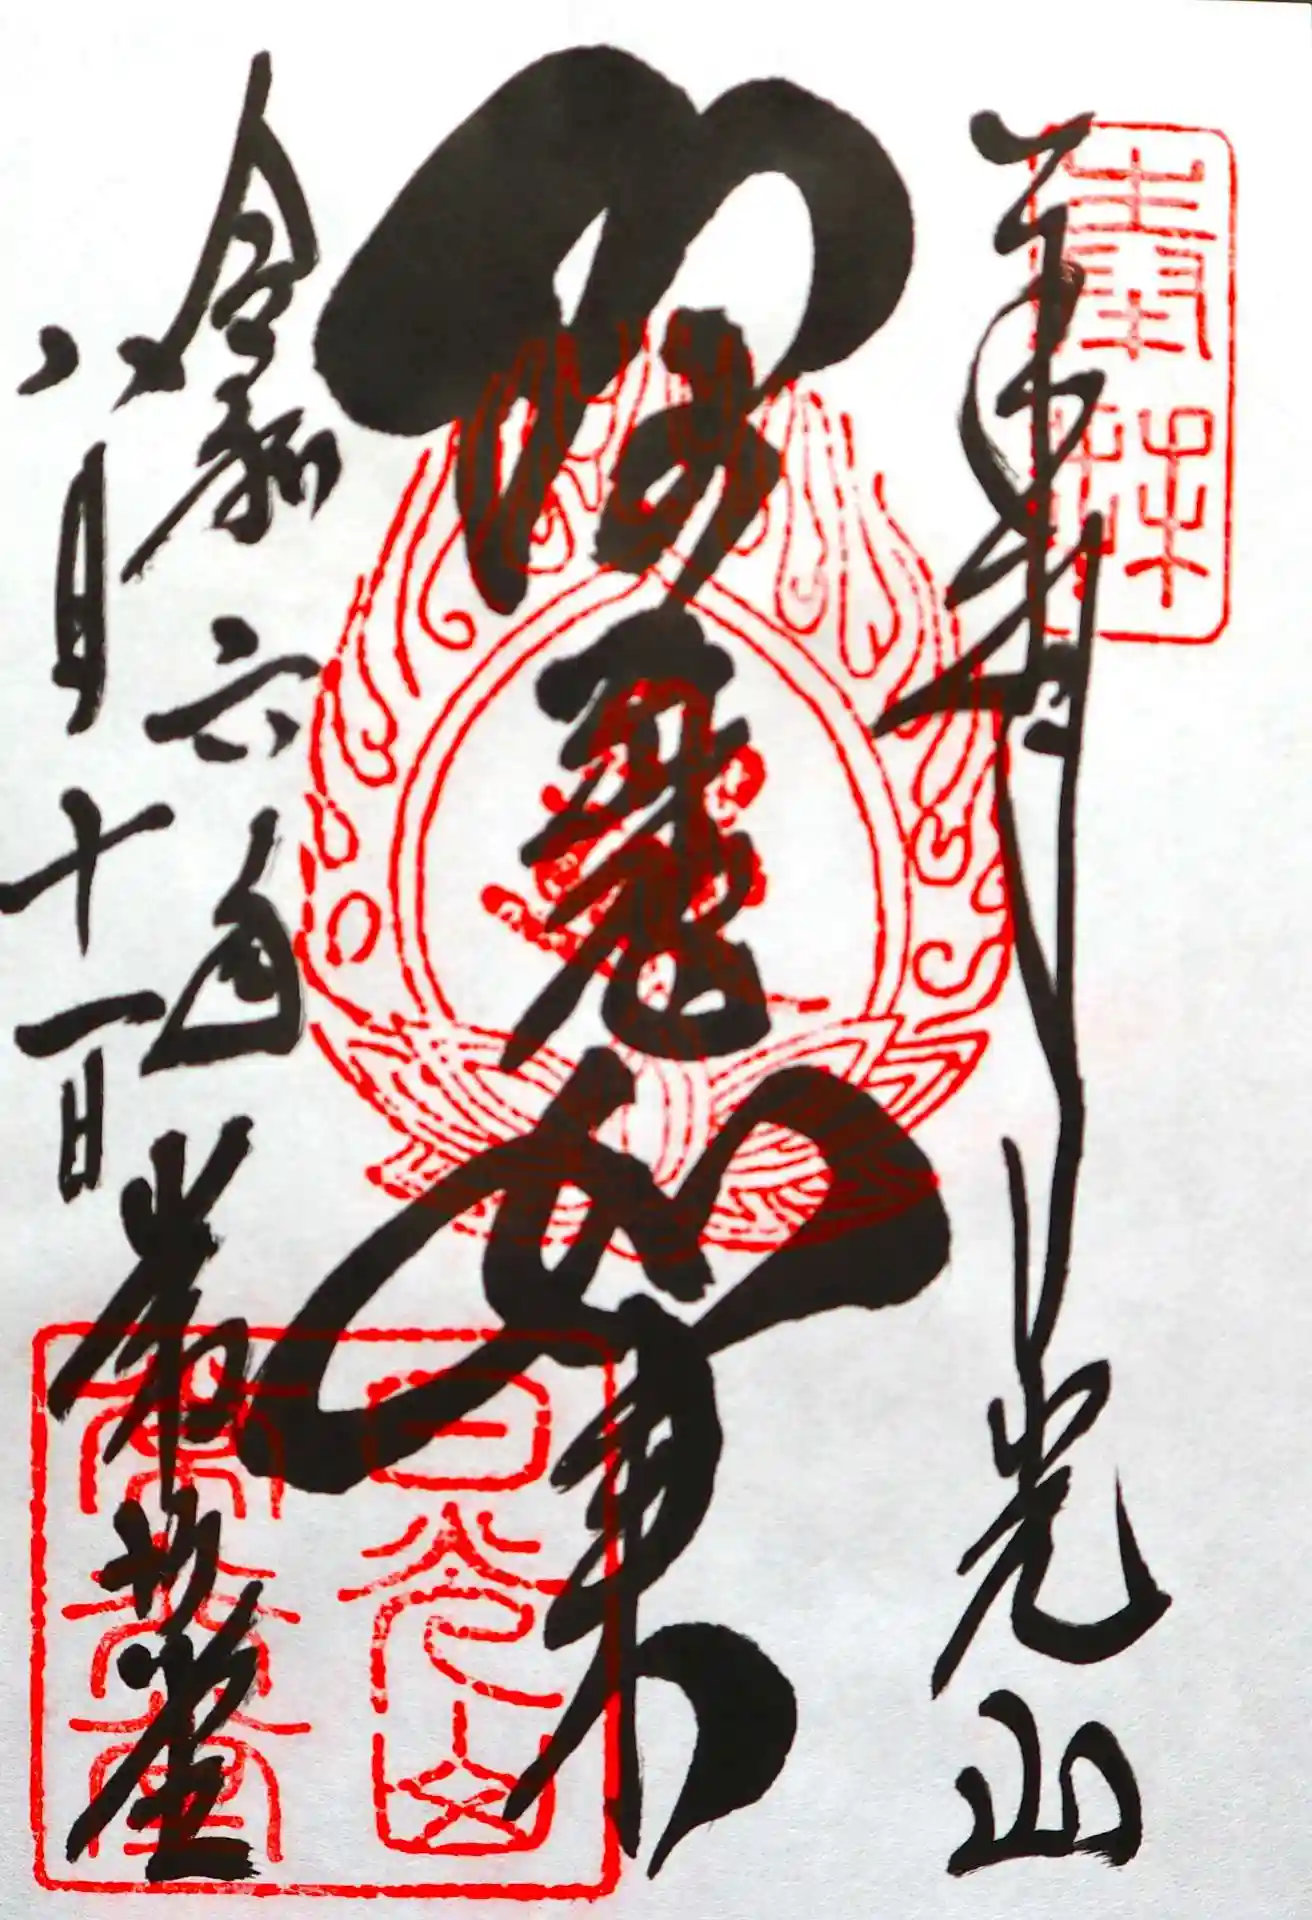 奉拝
奉拝
光山
阿弥陀如来
令和六年
八月十一日
常行堂
日光山
常行堂